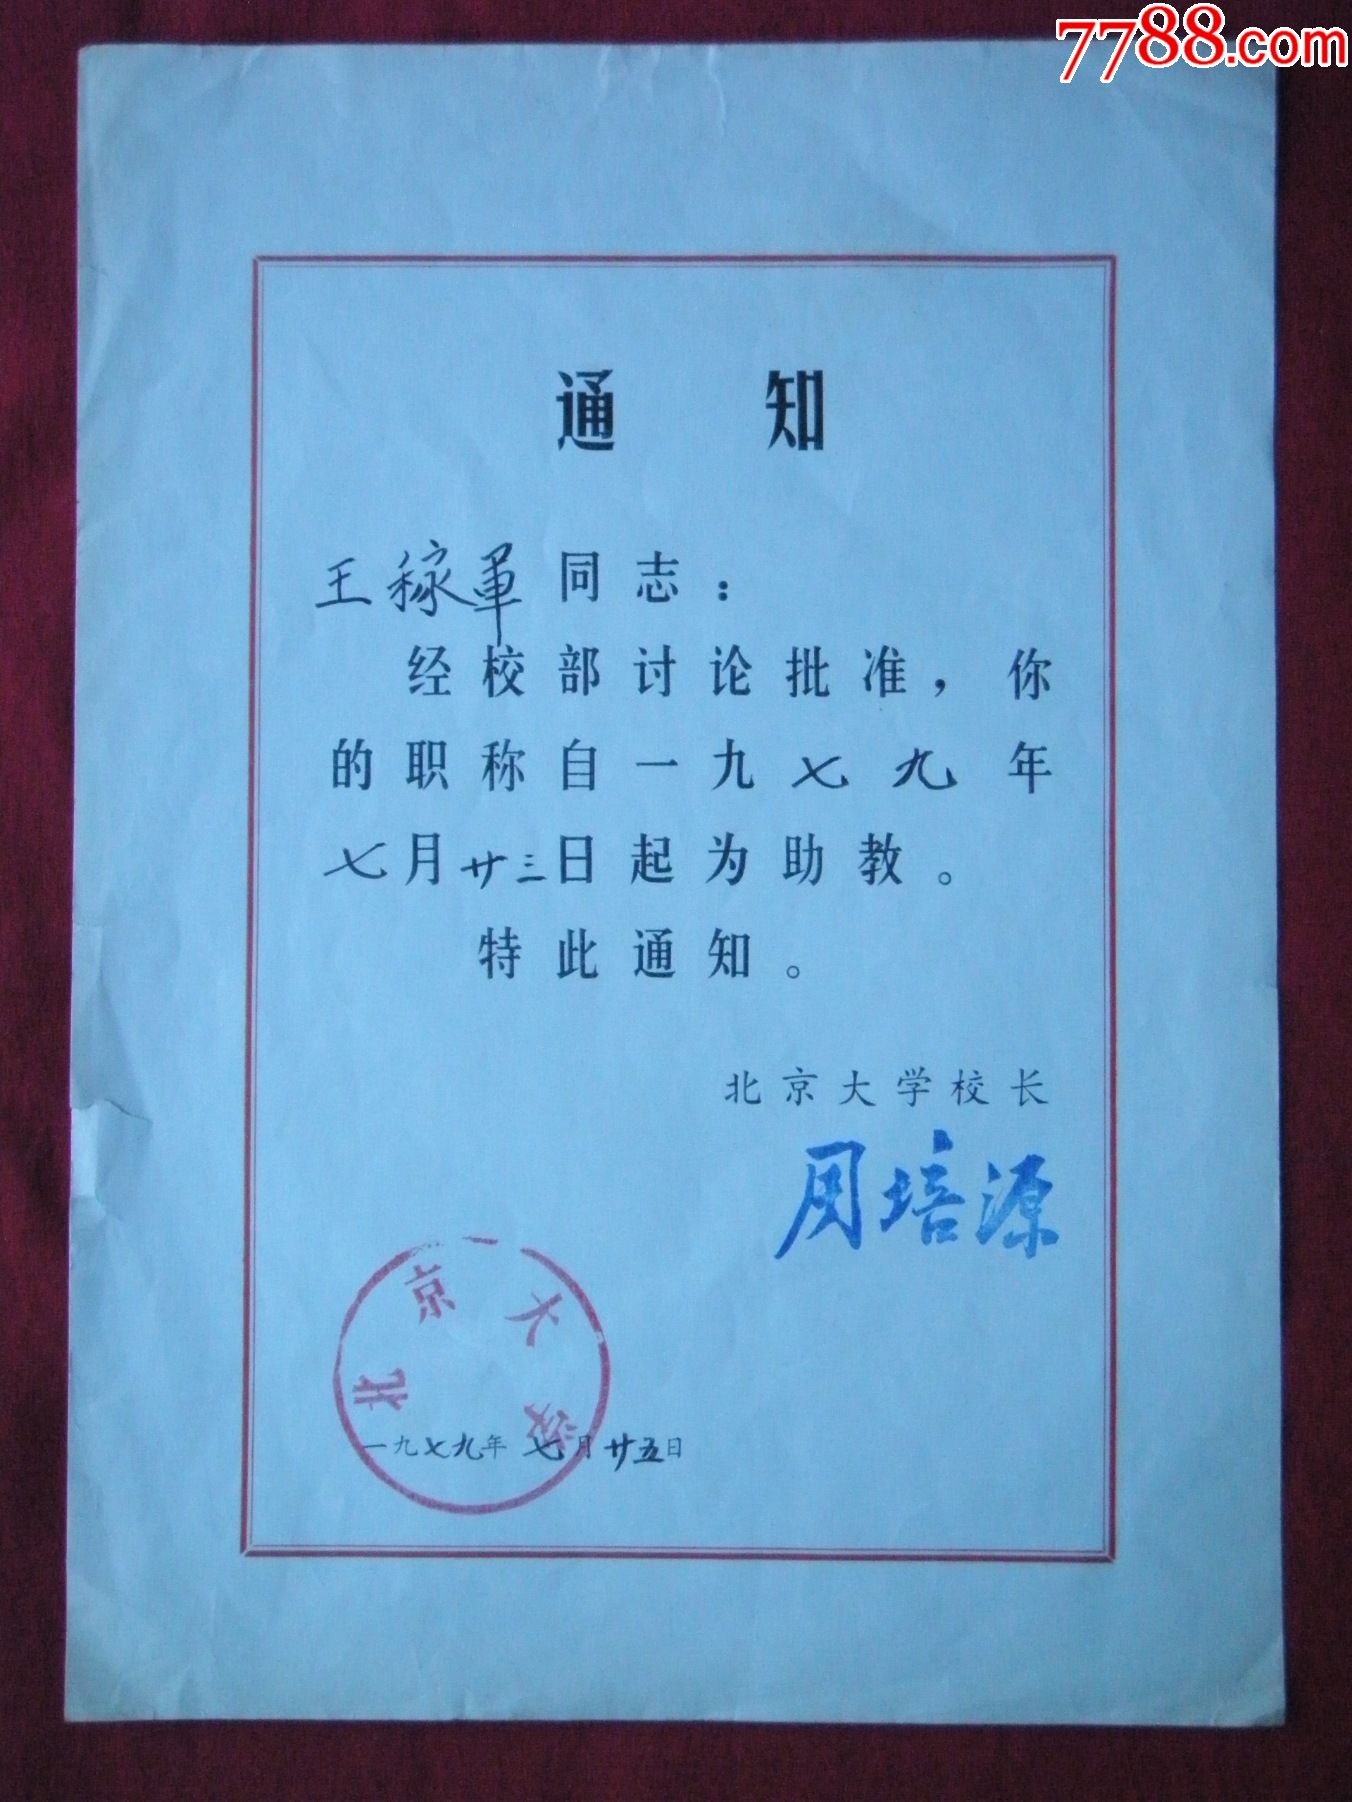 7788.com
通知
王稼军同志：
经校部讨论批准，你
的职称自一九七九年
七月廿三日起为助教。
特此通知。
北京大学校长
周培源
北京大学
一九七九年七月廿五日